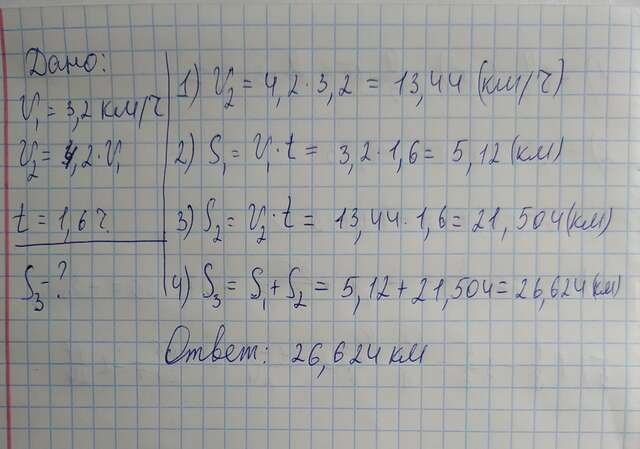 Дано:
V₁ = 3,2 км/ч
V₂ = 4,2·V₁
t = 1,6 ч.
S₃ - ?
1) V₂ = 4,2·3,2 = 13,44 (км/ч)
2) S₁ = V₁·t = 3,2·1,6 = 5,12 (км)
3) S₂ = V₂·t = 13,44·1,6 = 21,504 (км)
4) S₃ = S₁ + S₂ = 5,12 + 21,504 = 26,624 (км)
Ответ: 26,624 км